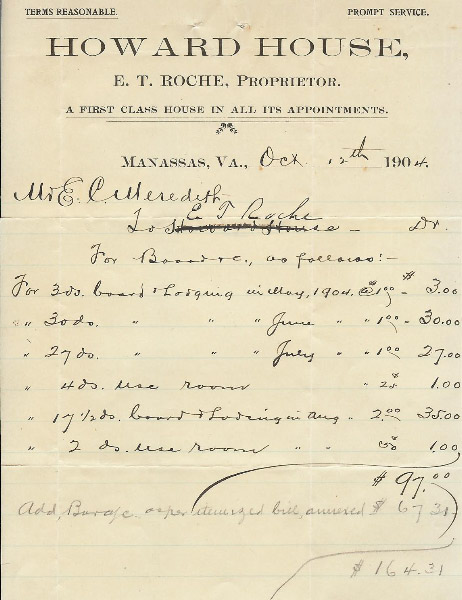 TERMS REASONABLE. PROMPT SERVICE.
HOWARD HOUSE,
E. T. ROCHE, PROPRIETOR.
A FIRST CLASS HOUSE IN ALL ITS APPOINTMENTS.
MANASSAS, VA., Oct 12th 1904.
Mr E. C. Meredith
E T Roche
To Howard House — Dr.
For Board &c., as follows:—
For 3 ds. board & Lodging in May, 1904. @ 1.00 = $ 3.00
" 30 ds. " " " June " " 1.00 - 30.00
" 27 ds. " " " July " " 1.00 27.00
" 4 ds. use room " 25 1.00
" 17 1/2 ds. board & Lodging in Aug " 2.00 35.00
" 2 ds. use room " " 50 1.00
$ 97.00
Add, Bar a/c as per itemized bill, annexed $ 67 31
$ 164.31